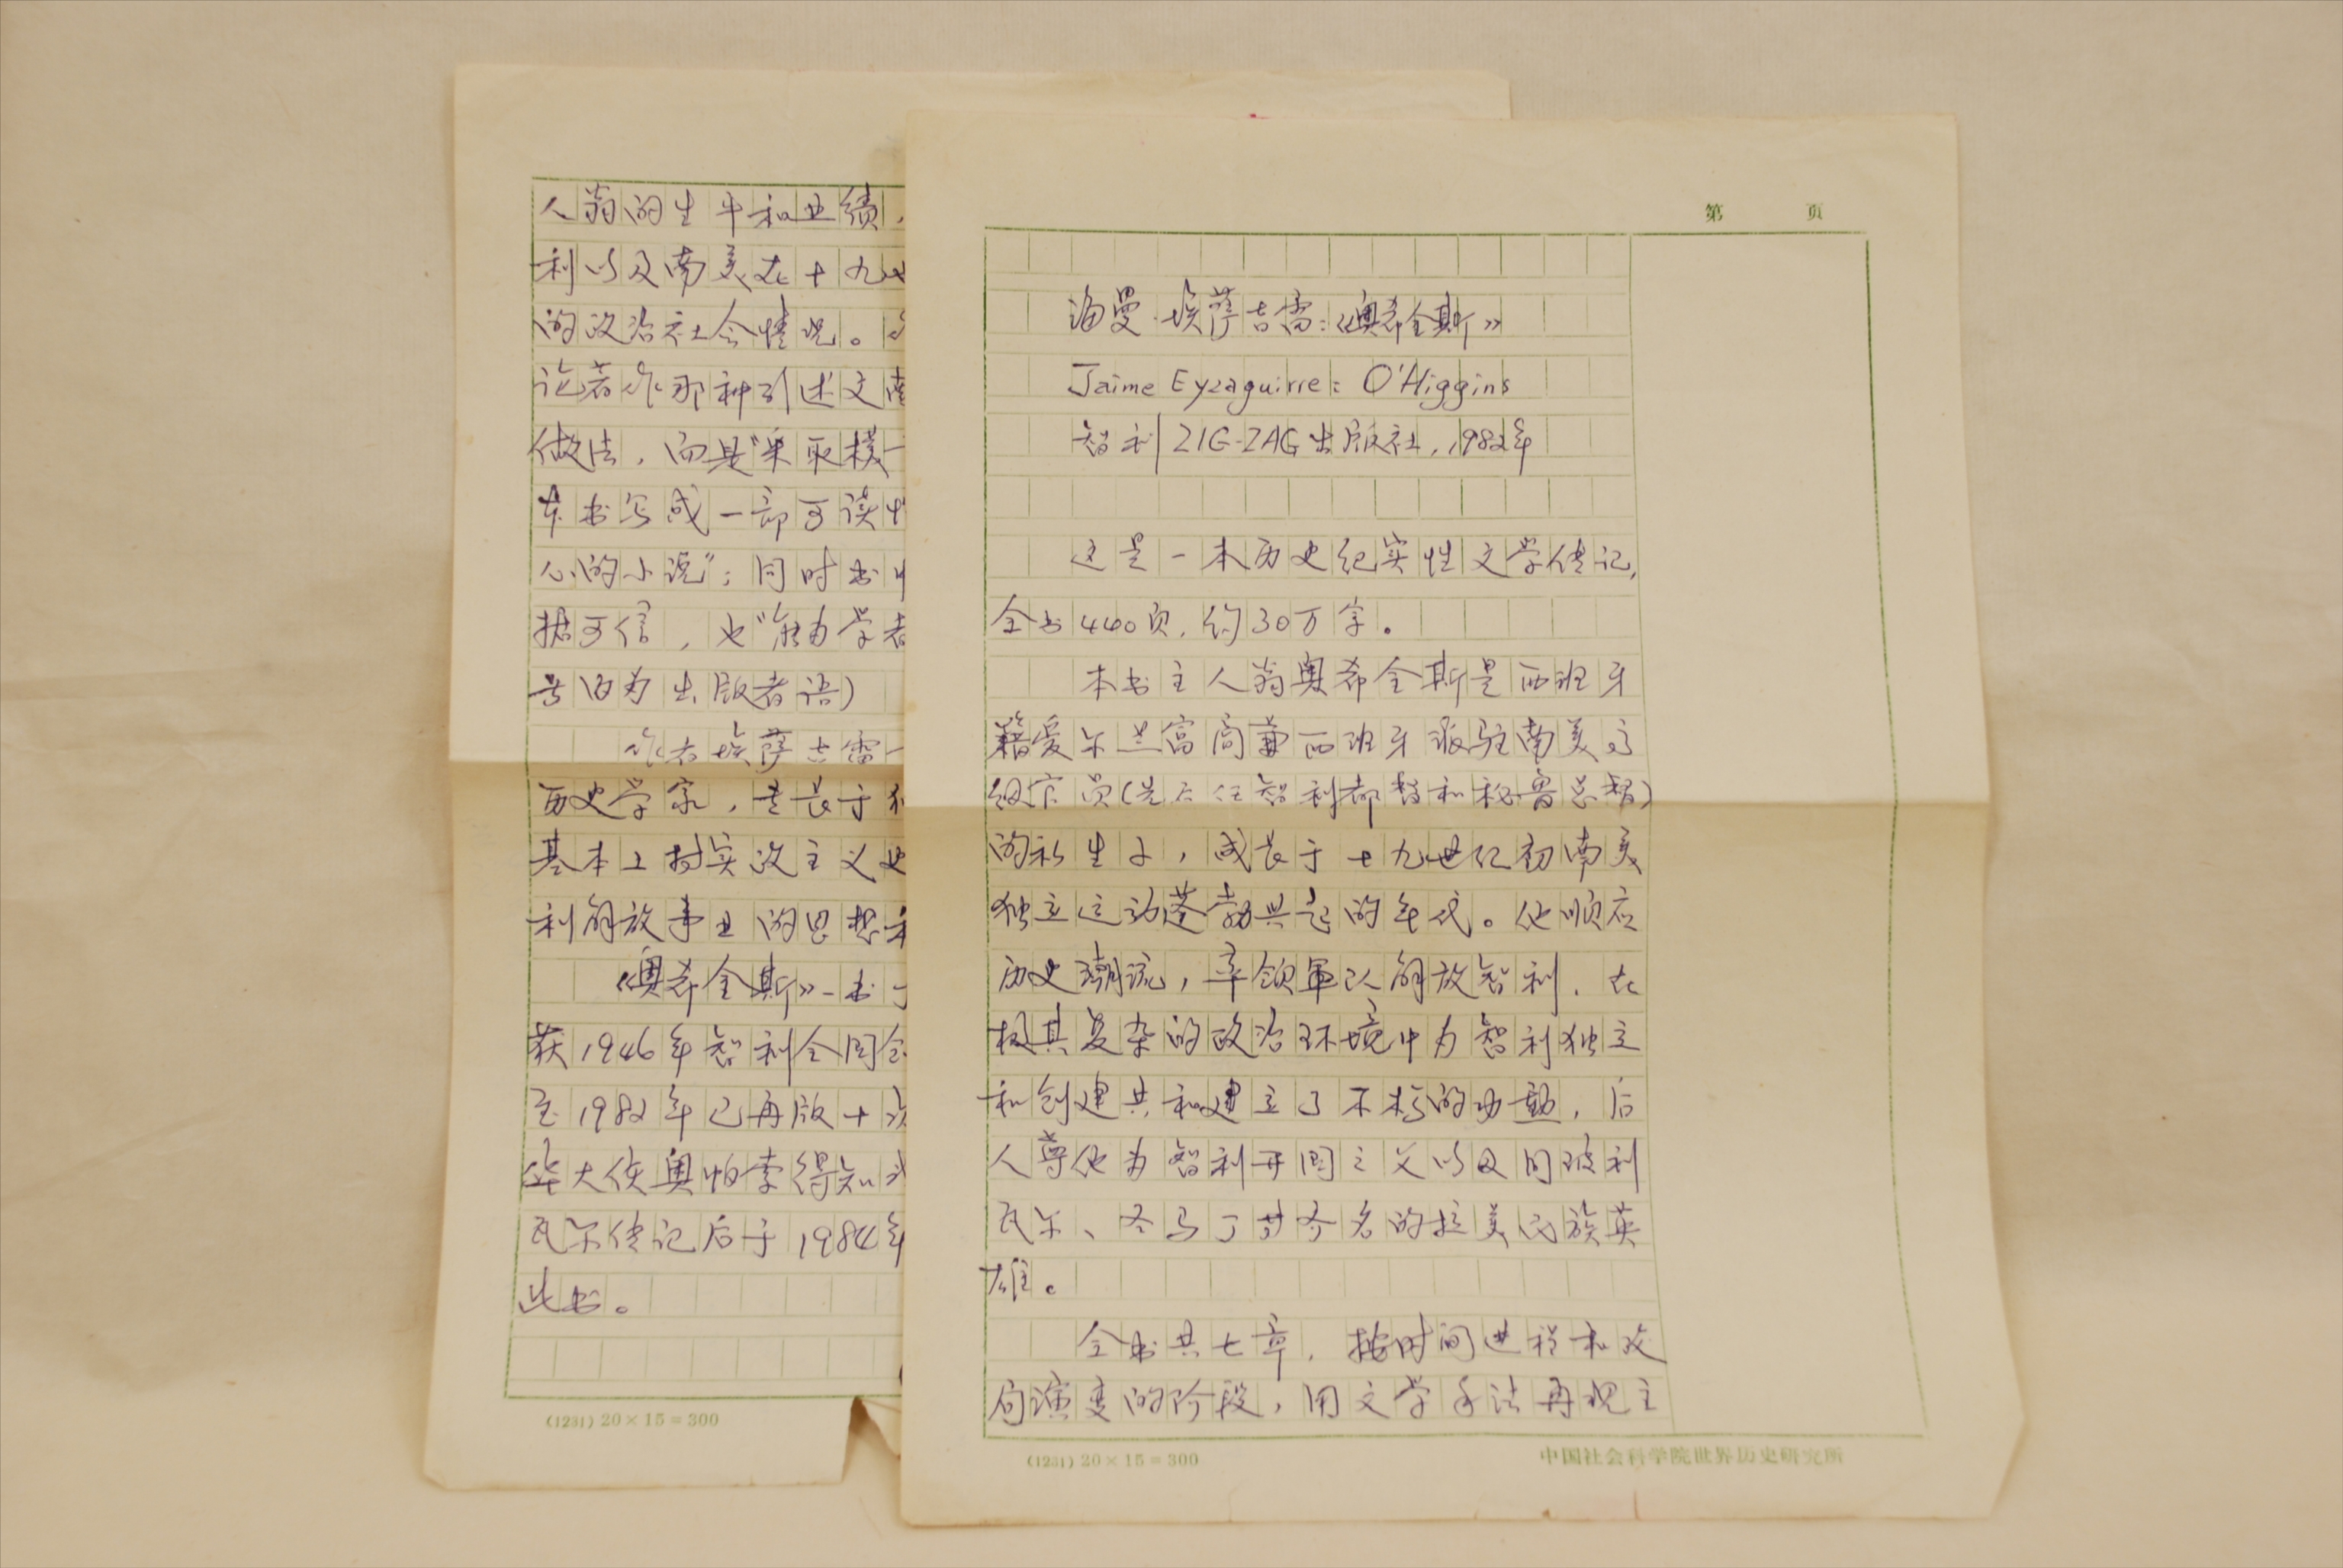 第 页
海曼·埃萨吉雷:《奥希金斯》
Jaime Eyzaguirre: O'Higgins
智利ZIG-ZAG出版社,1982年
这是一本历史纪实性文学传记,
全书440页,约30万字。
本书主人翁奥希金斯是西班牙
籍爱尔兰富商兼西班牙派驻南美高
级官员(先后任智利都督和秘鲁总督)
的私生子,成长于十九世纪初南美
独立运动蓬勃兴起的年代。他顺应
历史潮流,率领军队解放智利,在
极其复杂的政治环境中为智利独立
和创建共和建立了不朽的功勋,后
人尊他为智利开国之父以及同玻利
瓦尔、圣马丁齐名的拉美民族英
雄。
全书共七章,按时间进程和政
局演变的阶段,用文学手法再现主
(1231) 20×15=300
中国社会科学院世界历史研究所
人翁的生平和业绩,
利以及南美在十九世
的政治社会情况。
论著作那种引述文献
做法,而是“采取模一
本书写成一部可读性
心的小说”;同时书中
据可信,也“能为学者
号内为出版者语)
作者埃萨吉雷一
历史学家,专长于
基本上持实政主义史
利解放事业的思想和
《奥希金斯》一书于
获1946年智利全国
至1982年已再版十次
华大使奥帕索得知
瓦尔传记后于1984年
此书。
(1231) 20×15=300